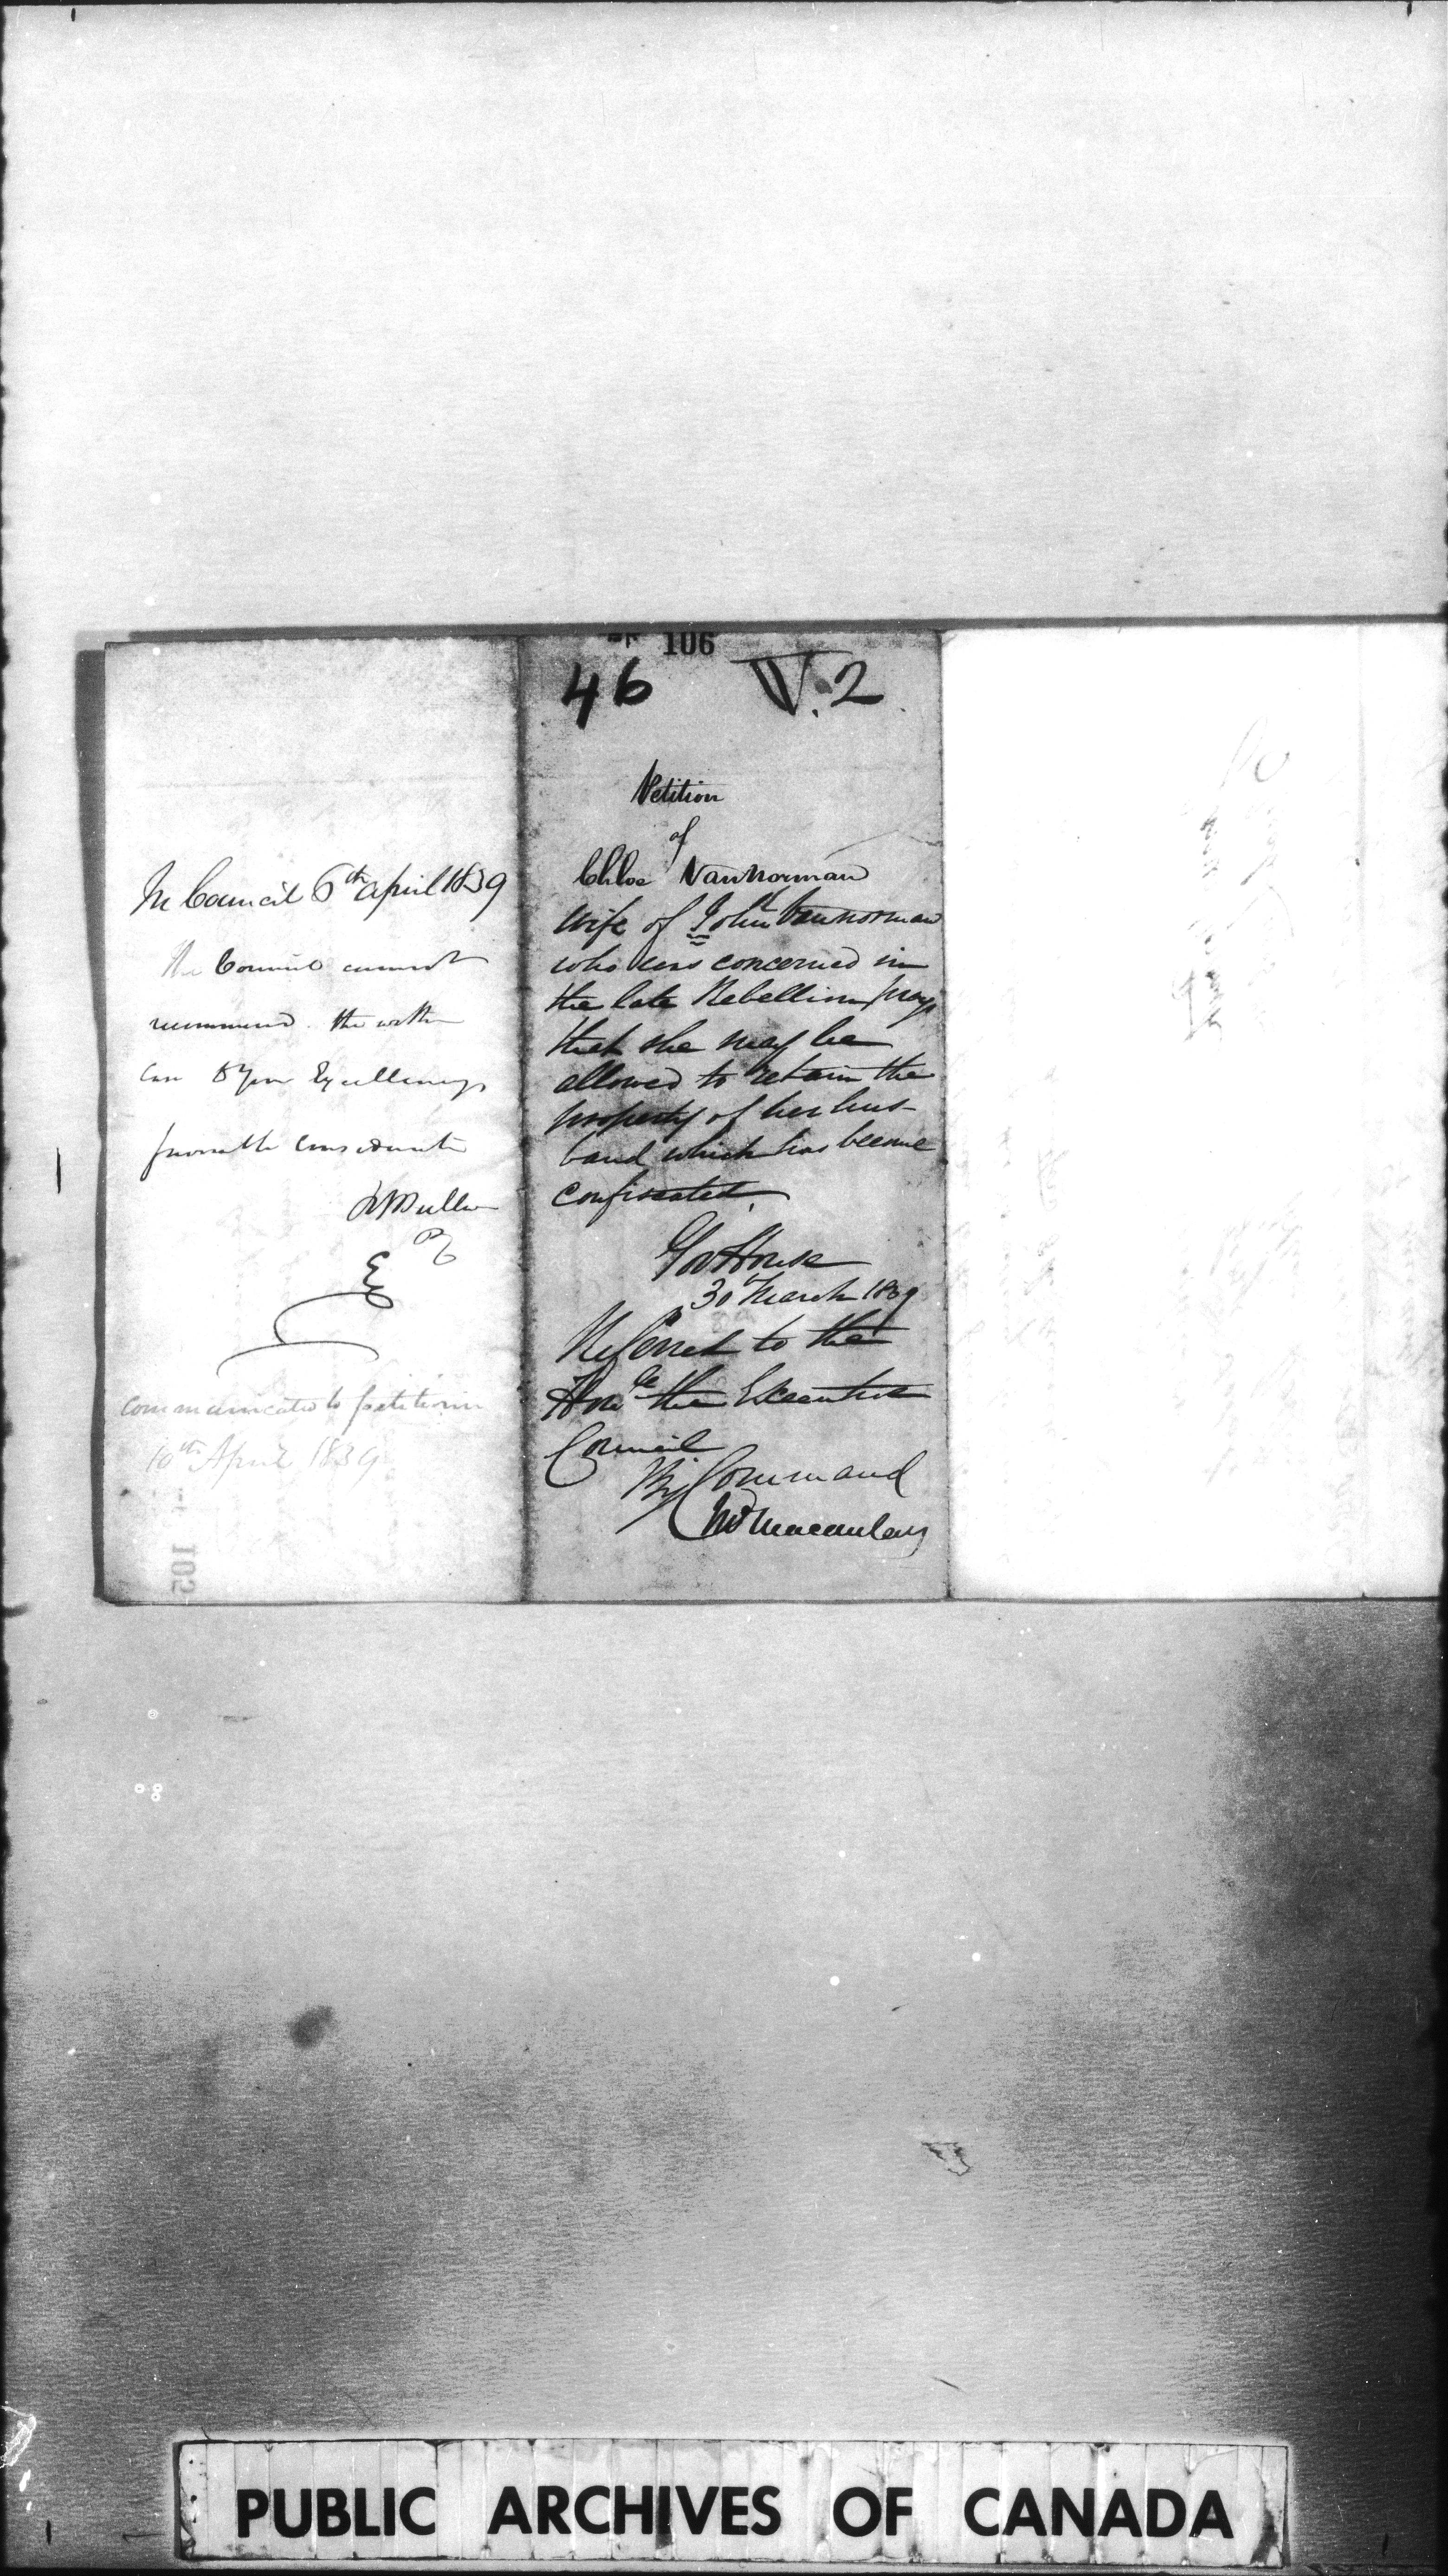 In Council 6th April 1839
The Council cannot
recommend the within
case to Your Excellency's
favorable consideration
RBSullivan
PC
Communicated to petitioner
10th April 1839
106
46 V.2
Petition
of
Chloe VanNorman
Wife of John Vannorman
who was concerned in
the late Rebellion prays
that she may be
allowed to retain the
property of her hus-
band which has become
confiscated.
Gov House
30 March 1839
Referred to the
Honble the Executive
Council
By Command
Jno Macaulay
PUBLIC ARCHIVES OF CANADA